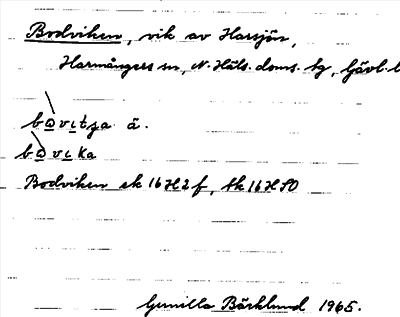 Bodviken, vik av Harsjön,
Harmångers sn, N. Häls. doms. hg, Gävl. l
bωvitʒa ä.
bωvika
Bodviken ek 16H2f, tk 16H SO
Gunilla Bäcklund 1965.